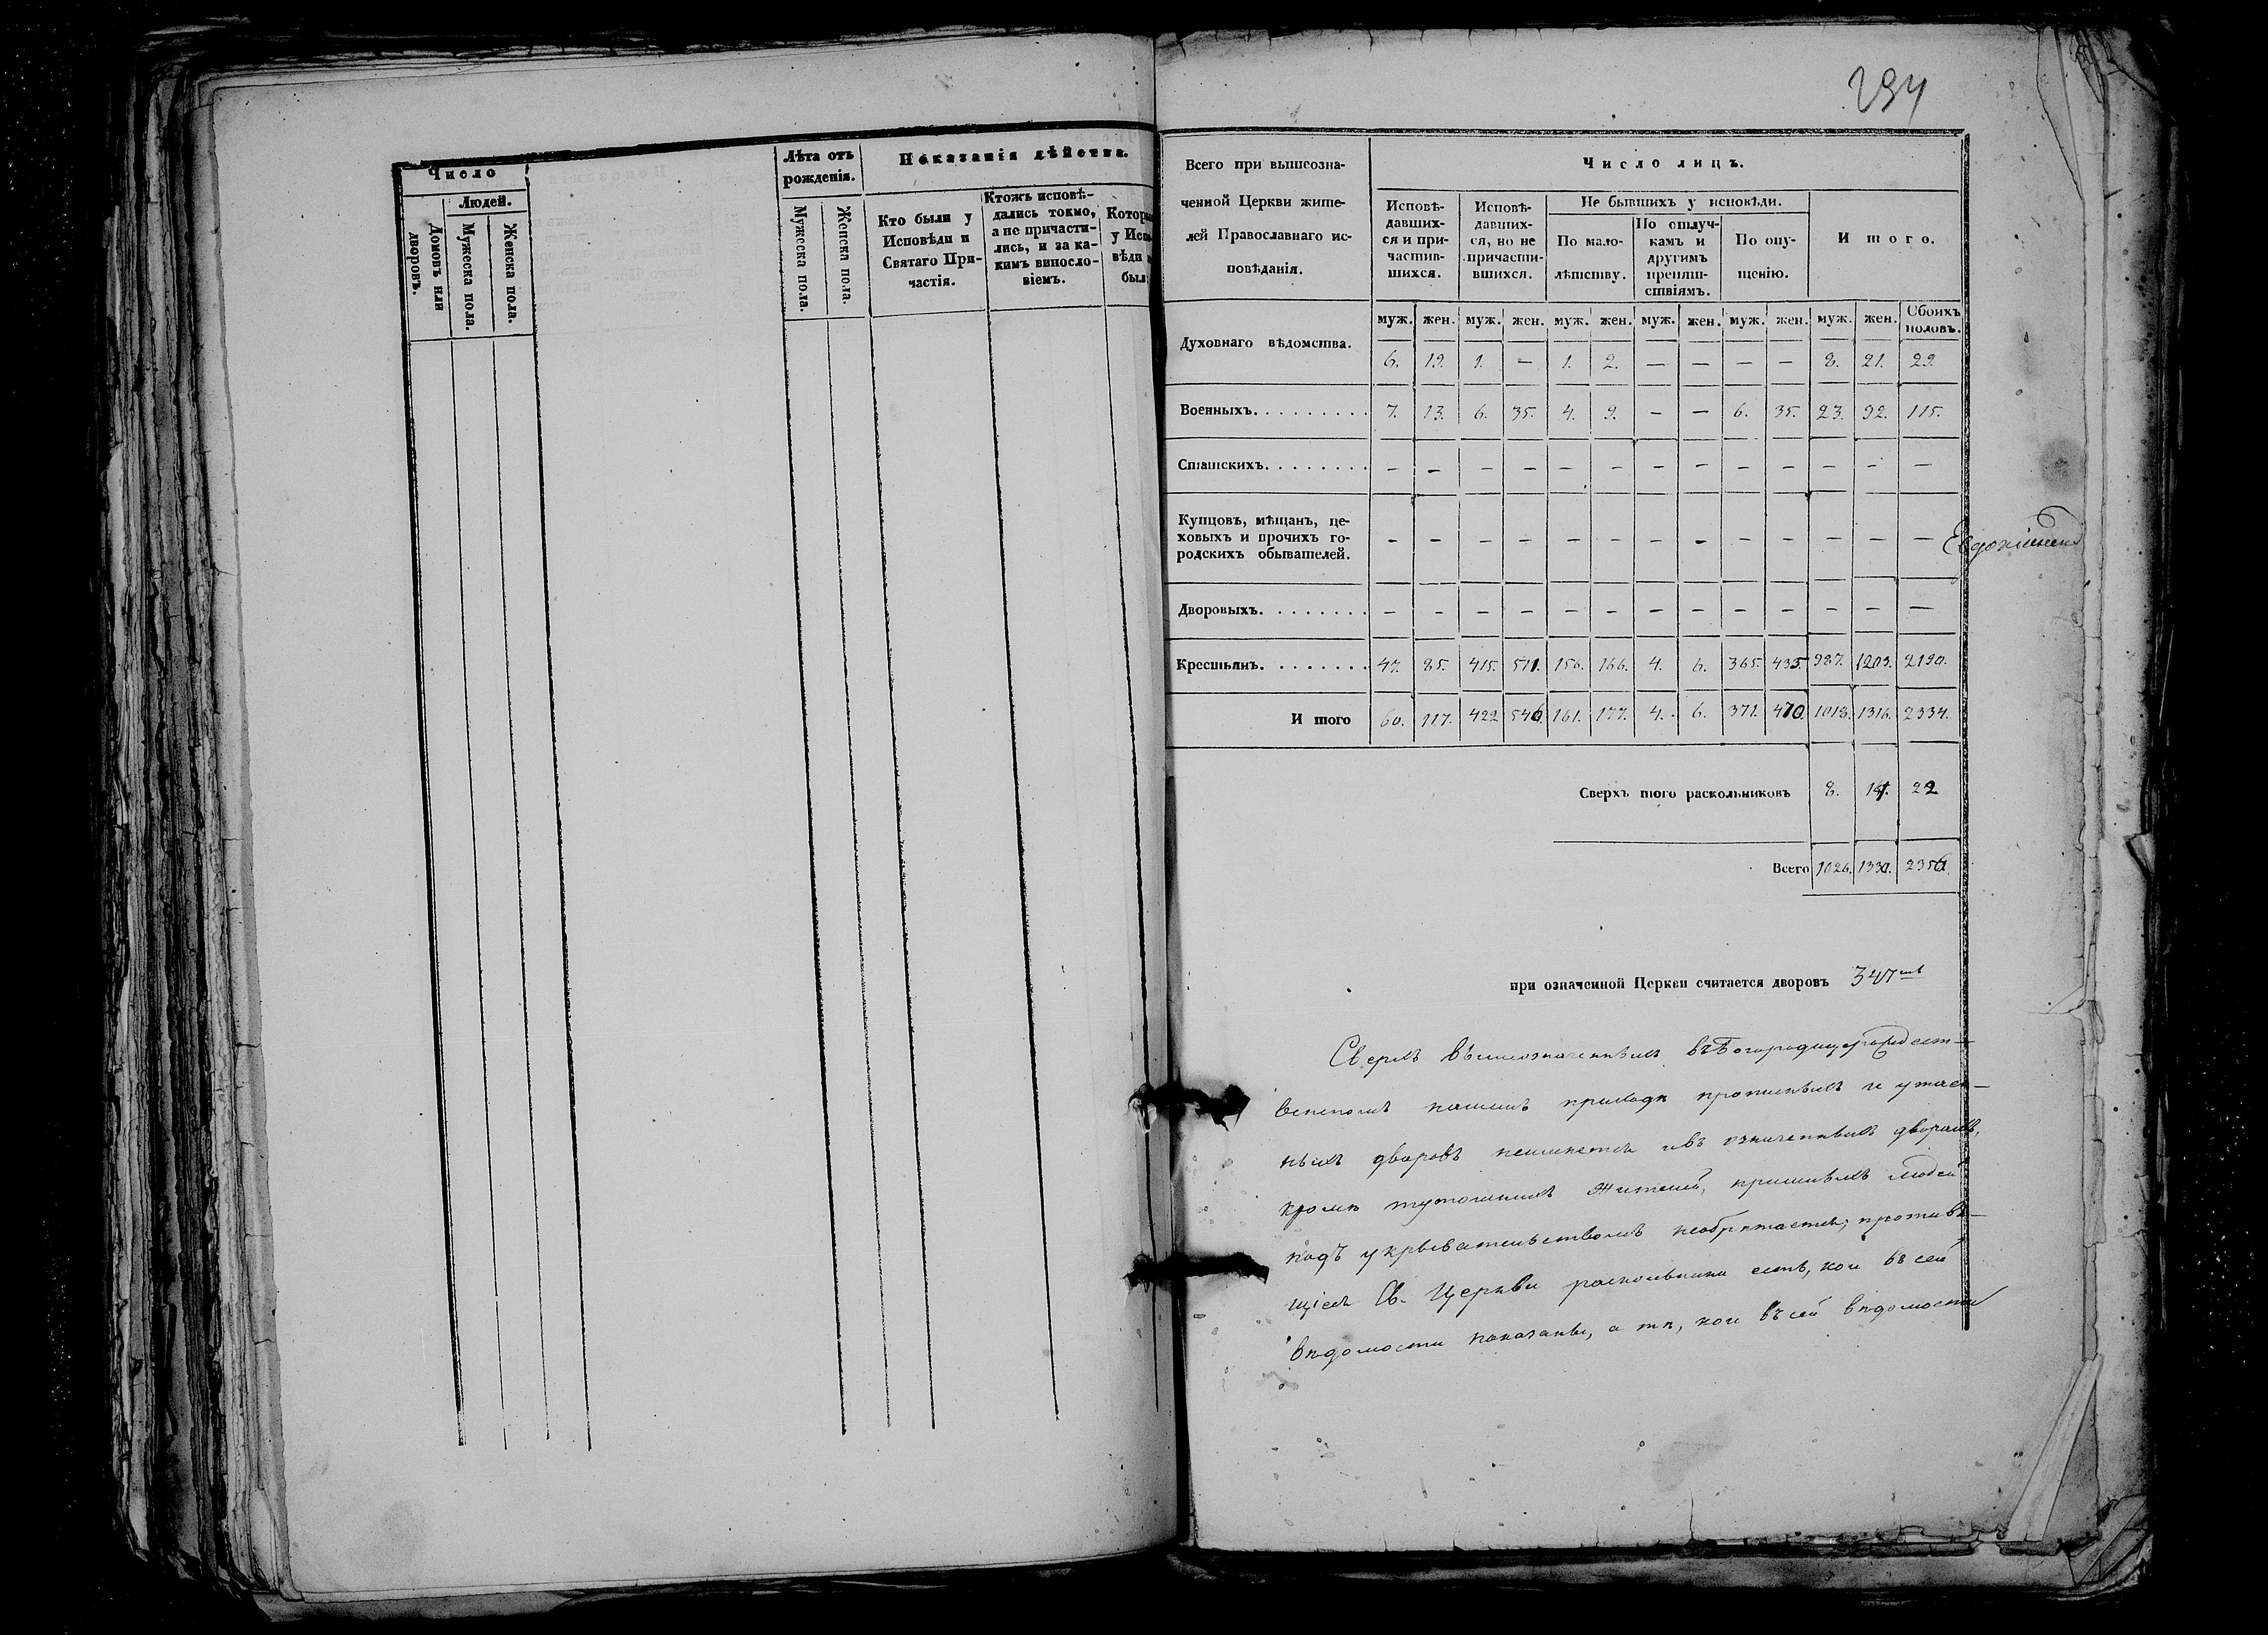 Число
Людей.
Домовъ или дворовъ.
Мужеска пола.
Женска пола.
Лѣта отъ рожденія.
Мужеска пола.
Женска пола.
Показанія дѣйства.
Кто были у Исповѣди и Святаго Причастія.
Ктожъ исповѣ-
дались токмо,
а не причасти-
лись, и за ка-
кимъ винословіемъ.
294
Всего при вышеозна-
ченной Церкви жите-
лей Православнаго ис-
повѣданія.
Число лицъ.
Исповѣ-
давших-
ся и при-
частив-
шихся.
Исповѣ-
давших-
ся, но не
причасти-
вшихся.
Не бывшихъ у исповѣди.
По мало-
лѣтству.
По отлуч-
камъ и
другимъ
препят-
ствіямъ.
По опу-
щенію.
И того.
муж. жен. муж. жен. муж. жен. муж. жен. муж. жен. муж. жен. Обоихъ половъ.
Духовнаго вѣдомства. 6. 19. 1. — 1. 2. — — — — 8. 21. 29.
Военныхъ. 7. 13. 6. 35. 4. 9. — — 6. 35. 23. 92. 115.
Статскихъ. — — — — — — — — — — — — —
Купцовъ, мѣщанъ, це-
ховыхъ и прочихъ го-
родскихъ обывателей. — — — — — — — — — — — — —
Дворовыхъ. — — — — — — — — — — — — —
Крестьянъ. 47. 85. 415. 511. 156. 166. 4. 6. 365. 435. 987. 1203. 2190.
И того 60. 117. 422 546. 161. 177. 4. 6. 371. 470. 1018. 1316. 2334.
Сверхъ того раскольниковъ 8. 14. 22
Всего 1026. 1330. 2356.
при означенной Церкви считается дворовъ 347
Сверхъ вышеозначенныхъ въ Богородицерождест-
венскомъ нашемъ приходѣ прописныхъ и утаен-
ныхъ дворовъ неимѣется и въ означенныхъ дворахъ,
кромѣ тутошнихъ жителей, пришлыхъ людей
подъ укрывательствомъ необрѣтается, противя-
щіеся Св. Церкви раскольники есть, кои въ сей
вѣдомости показаны, а тѣ, кои въ сей вѣдомости